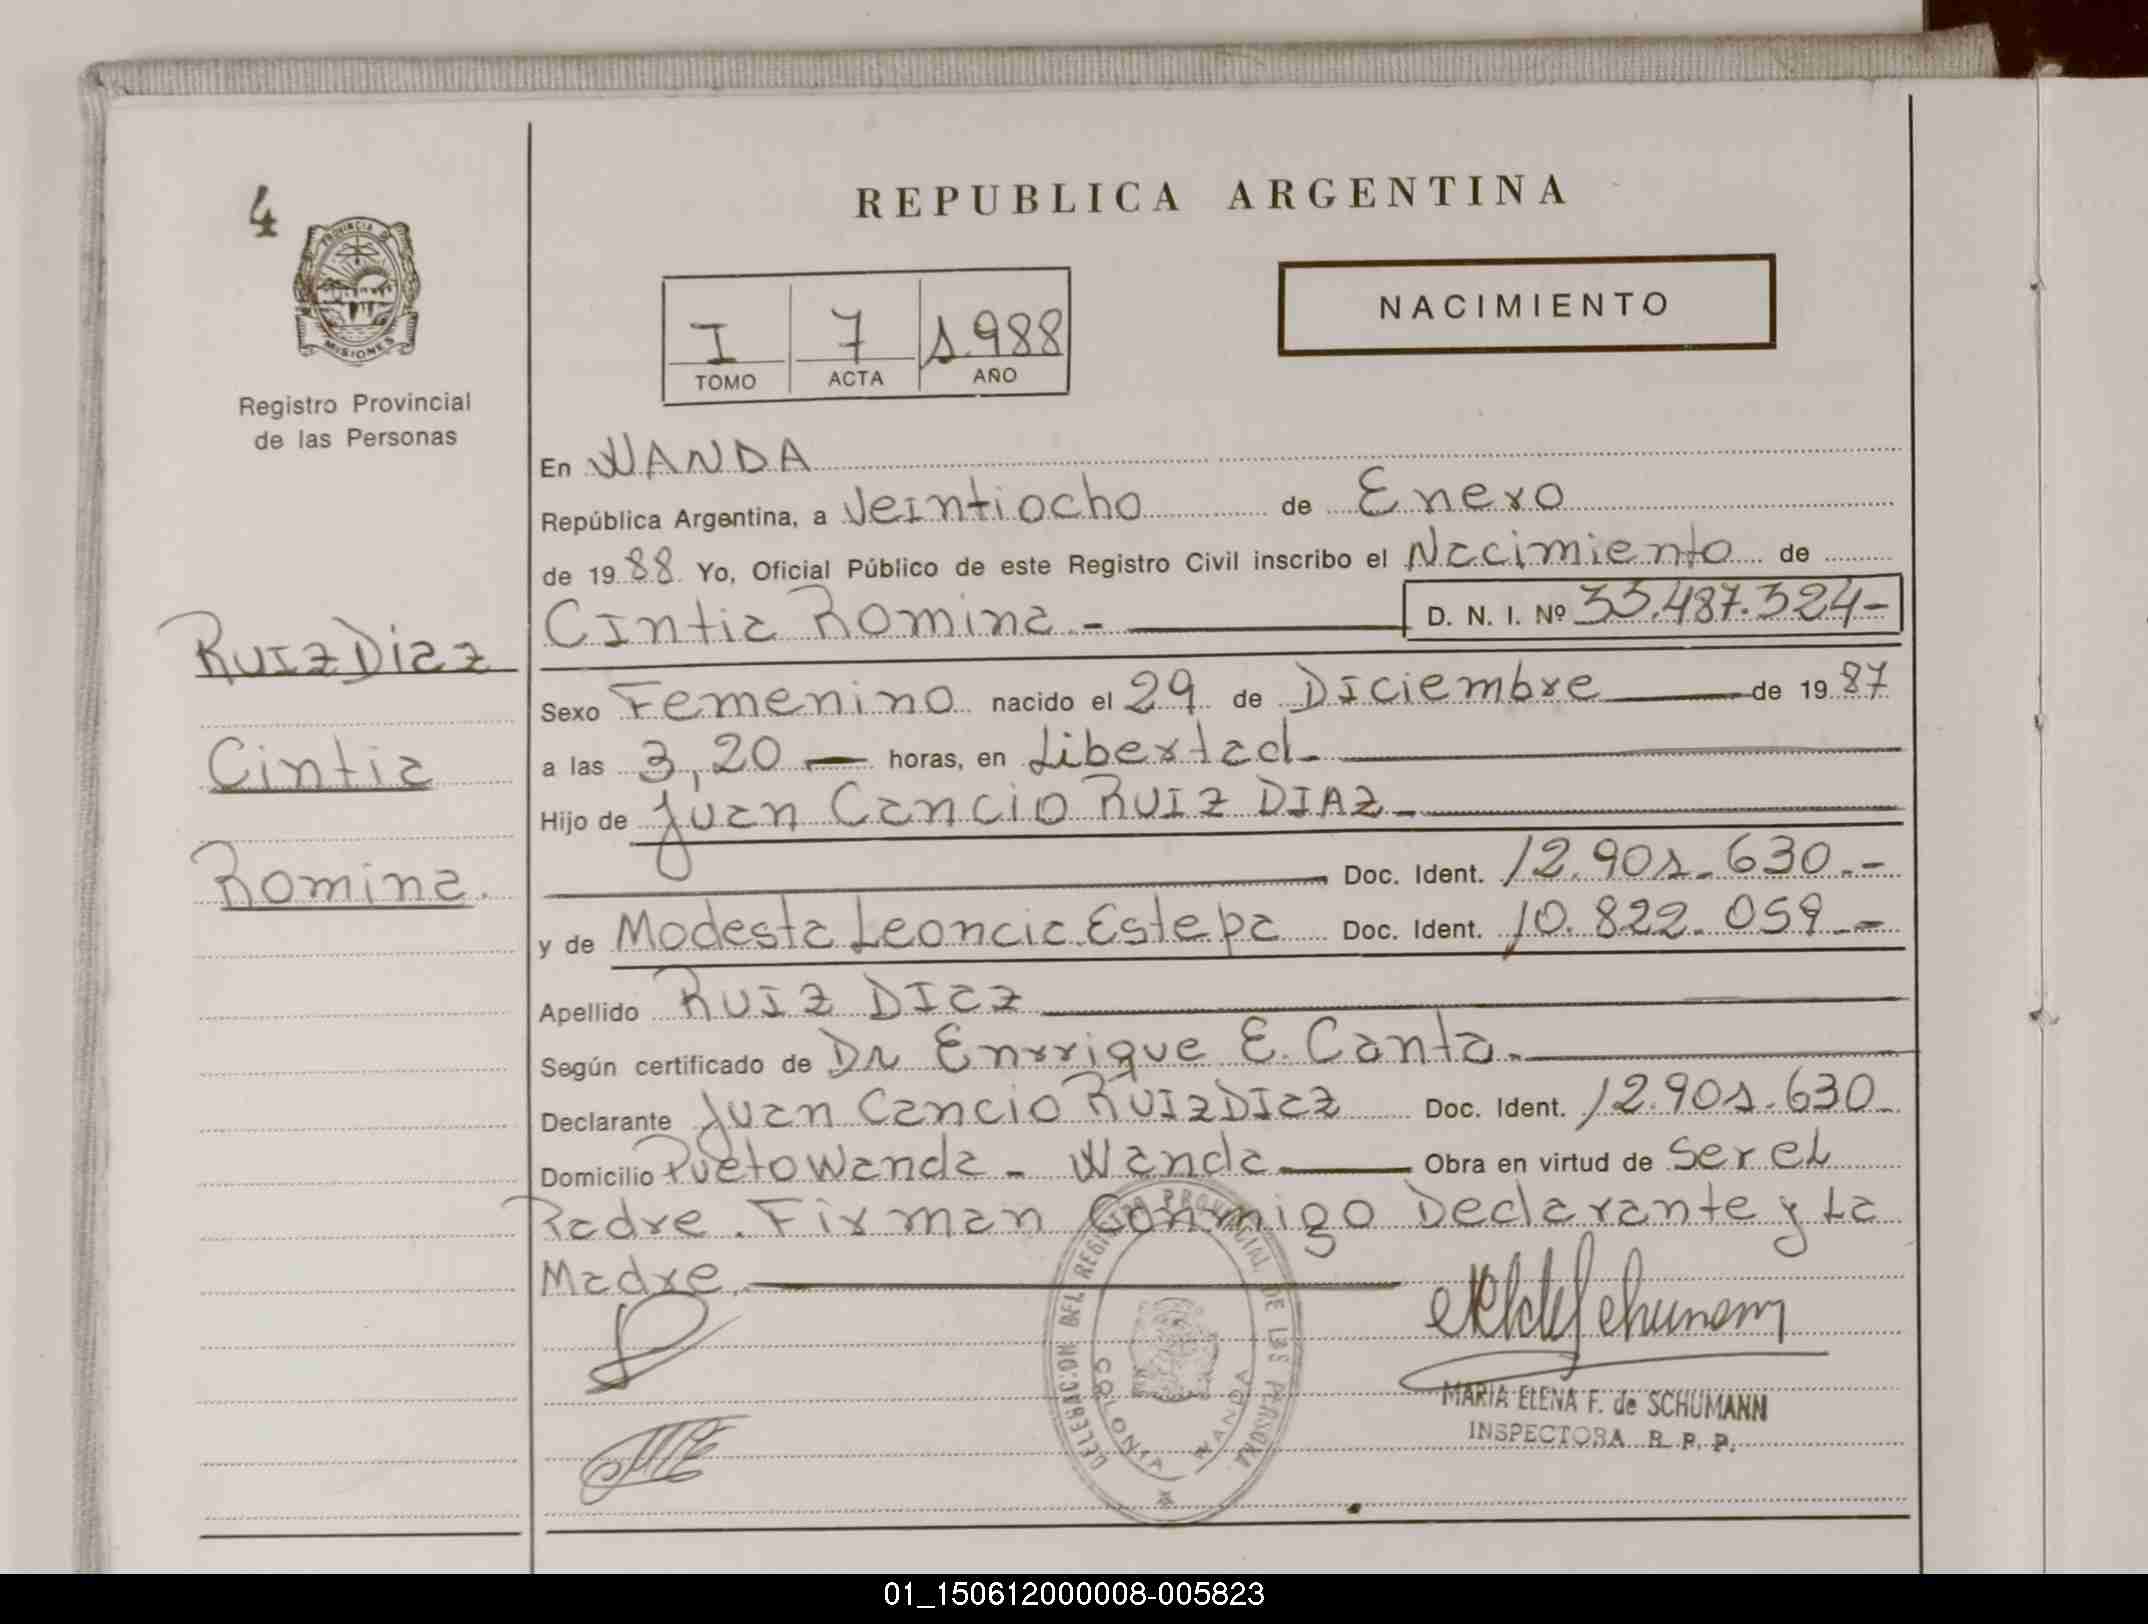 4
PROVINCIA DE
MISIONES
Registro Provincial
de las Personas
REPUBLICA ARGENTINA
I 7 1.988
TOMO ACTA AÑO
NACIMIENTO
En WANDA
República Argentina, a Veintiocho de Enero
de 1988 Yo, Oficial Público de este Registro Civil inscribo el Nacimiento de
Cintia Romina.- D. N. I. Nº 33.487.324-
Ruiz Diaz
Cintia
Romina.
Sexo Femenino nacido el 29 de Diciembre de 1987
a las 3,20 horas, en Libertad.
Hijo de Juan Cancio RUIZ DIAZ
Doc. Ident. 12.901.630.-
y de Modesta Leoncia Estepa Doc. Ident. 10.822.059.-
Apellido RUIZ DIaZ
Según certificado de Dr Enrrique E. Canta.
Declarante Juan Cancio RUIZ DIaZ Doc. Ident. 12.901.630
Domicilio Pueto Wanda - Wanda Obra en virtud de ser el
Padre. Firman Conmigo Declarante y La
Madre.
DELEGACION DEL REGISTRO PROVINCIAL DE LAS PERSONAS
COLONIA WANDA
MARIA ELENA F. de SCHUMANN
INSPECTORA R. P. P.
01_150612000008-005823